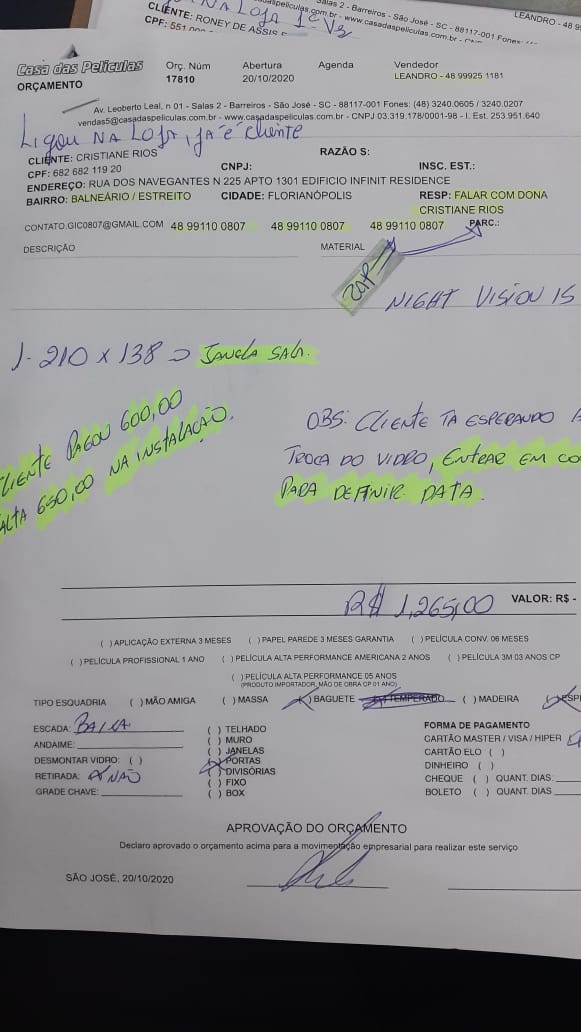 Salas 2 - Barreiros - São José - SC - 88117-001 Fones:
LEANDRO - 48 9
NA LOJA
CLIENTE: RONEY DE ASSIS
CPF: 551
Casa das Películas
ORÇAMENTO
Orç. Núm Abertura Agenda Vendedor
17810 20/10/2020 LEANDRO - 48 99925 1181
Av. Leoberto Leal, n 01 - Salas 2 - Barreiros - São José - SC - 88117-001 Fones: (48) 3240.0605 / 3240.0207
vendas5@casadaspeliculas.com.br - www.casadaspeliculas.com.br - CNPJ 03.319.178/0001-98 - I. Est. 253.951.640
LIGOU NA LOJA, JÁ É CLIENTE
RAZÃO S:
CLIENTE: CRISTIANE RIOS
CPF: 682 682 119 20 CNPJ: INSC. EST.:
ENDEREÇO: RUA DOS NAVEGANTES N 225 APTO 1301 EDIFICIO INFINIT RESIDENCE
BAIRRO: BALNEÁRIO / ESTREITO CIDADE: FLORIANÓPOLIS RESP: FALAR COM DONA
CRISTIANE RIOS
CONTATO.GIC0807@GMAIL.COM 48 99110 0807 48 99110 0807 48 99110 0807 PARC.:
DESCRIÇÃO MATERIAL
ZAP
NIGHT VISION 15
1- 210 x 138 → JANELA SALA.
CLIENTE PAGOU 600,00
FALTA 650,00 NA INSTALAÇÃO.
OBS: CLIENTE TA ESPERANDO A
TROCA DO VIDRO, ENTRAR EM CO
PARA DEFINIR DATA.
R$ 1,265,00 VALOR: R$ -
( ) APLICAÇÃO EXTERNA 3 MESES ( ) PAPEL PAREDE 3 MESES GARANTIA ( ) PELÍCULA CONV. 06 MESES
( ) PELÍCULA PROFISSIONAL 1 ANO ( ) PELÍCULA ALTA PERFORMANCE AMERICANA 2 ANOS ( ) PELÍCULA 3M 03 ANOS CP
( ) PELÍCULA ALTA PERFORMANCE 05 ANOS
(PRODUTO IMPORTADOR, MÃO DE OBRA CP 01 ANO)
TIPO ESQUADRIA ( ) MÃO AMIGA ( ) MASSA (X) BAGUETE TEMPERADO ( ) MADEIRA (X) ESP
ESCADA: BAIXA
ANDAIME:
DESMONTAR VIDRO: ( )
RETIRADA: (X) NÃO
GRADE CHAVE:
( ) TELHADO
( ) MURO
( ) JANELAS
(X) PORTAS
( ) DIVISÓRIAS
( ) FIXO
( ) BOX
FORMA DE PAGAMENTO
CARTÃO MASTER / VISA / HIPER
CARTÃO ELO ( )
DINHEIRO ( )
CHEQUE ( ) QUANT. DIAS:
BOLETO ( ) QUANT. DIAS
APROVAÇÃO DO ORÇAMENTO
Declaro aprovado o orçamento acima para a movimentação empresarial para realizar este serviço
SÃO JOSÉ, 20/10/2020